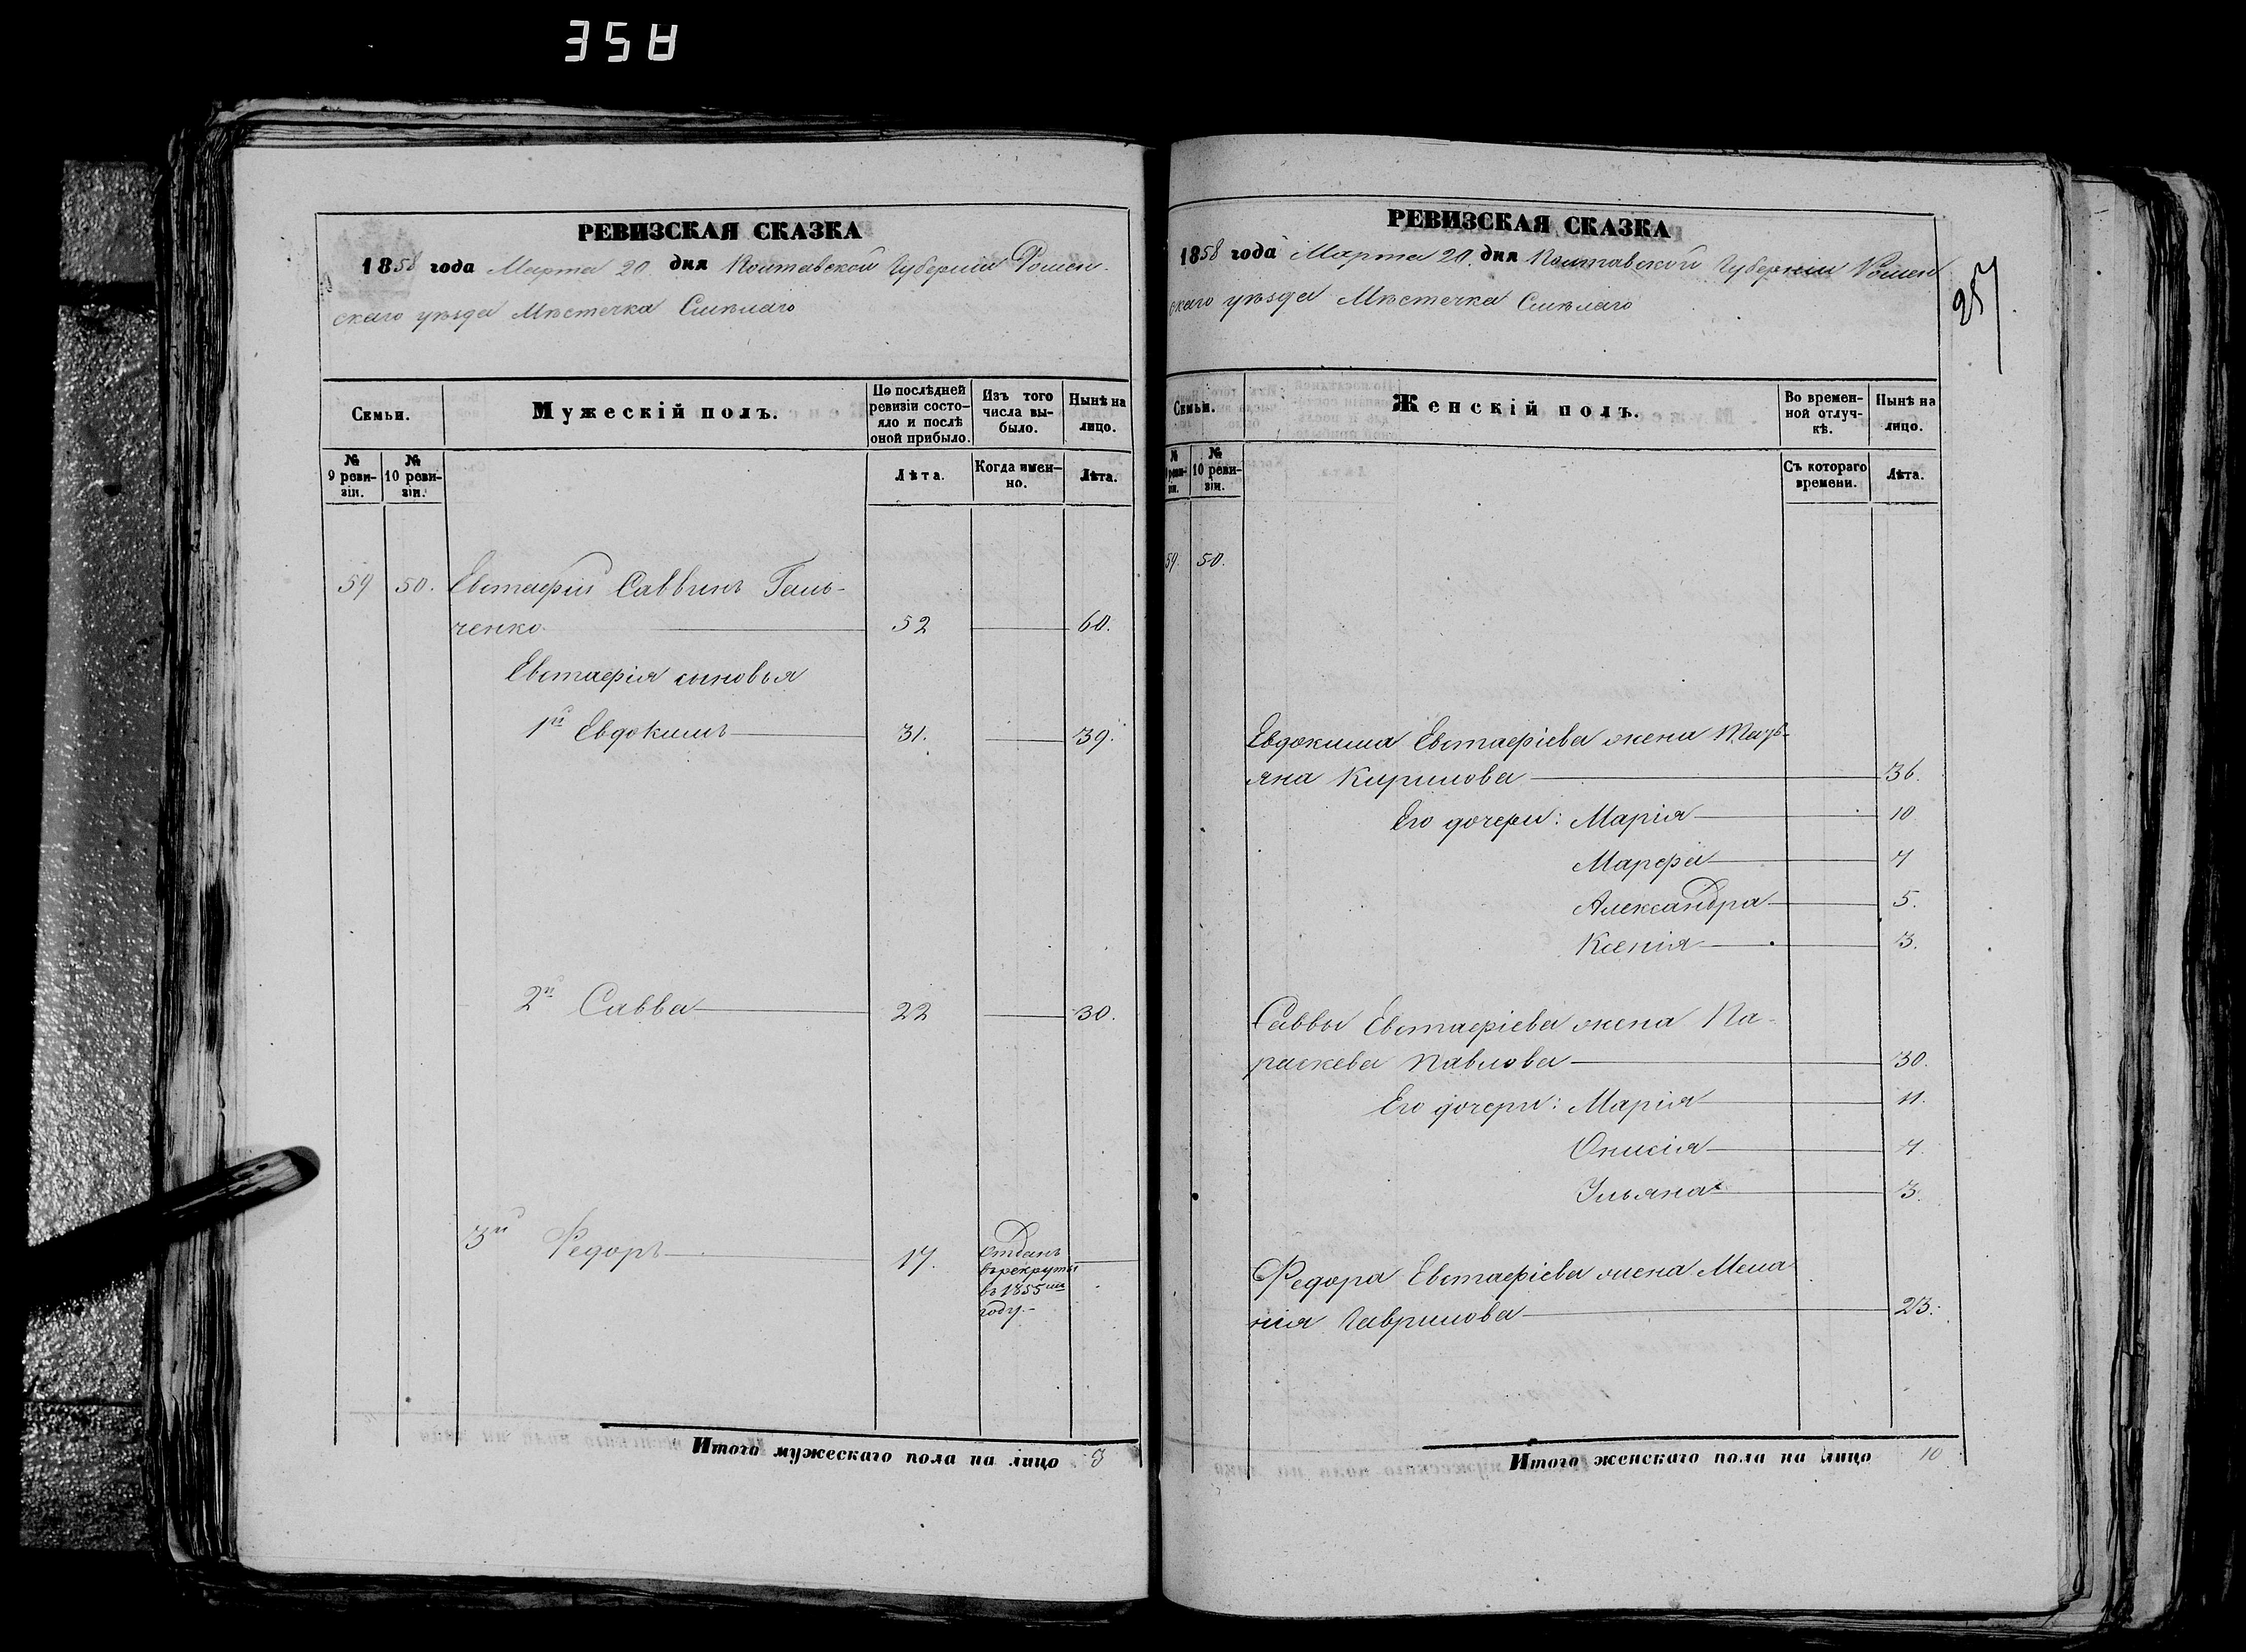 358
РЕВИЗСКАЯ СКАЗКА
1858 года Марта 20. дня Полтавской Губерніи Ромен-
скаго уѣзда Мѣстечка Смѣлаго
Семьи.
Мужескій полъ.
По послѣдней ревизіи состо-яло и послѣ оной прибыло.
Изъ того числа вы-было.
Нынѣ на лицо.
№ 9 реви-зіи.
№ 10 реви-зіи.
Лѣта.
Когда имен-но.
Лѣта.
59 50. Евстафій Саввинъ Галь-
ченко 52 60.
Евстафія сыновья
1й Евдокимъ 31. 39.
2й Савва 22 30.
3й Федоръ 17.
Отданъ
въ рекруты
въ 1855мъ
году.-
Итого мужескаго пола на лицо 3
РЕВИЗСКАЯ СКАЗКА
1858 года Марта 20. дня Полтавской Губерніи Ромен
скаго уѣзда Мѣстечка Смѣлаго
257
Семьи.
Женскій полъ.
Во времен-ной отлуч-кѣ.
Нынѣ на лицо.
№ 9 реви-зіи.
№ 10 реви-зіи.
Съ котораго времени.
Лѣта.
59. 50.
Евдокима Евстафіева жена
Кирилова 36.
Его дочери: Марія 10
Марфа 7
Александра 5.
Ксенія 3.
Саввы Евстафіева жена Па-
раскева Павлова 30.
Его дочери: Марія 11.
Онисія 7.
Ульяна 3.
Федора Евстафіева жена Мела
нія Гаврилова 23.
Итого женскаго пола на лицо 10